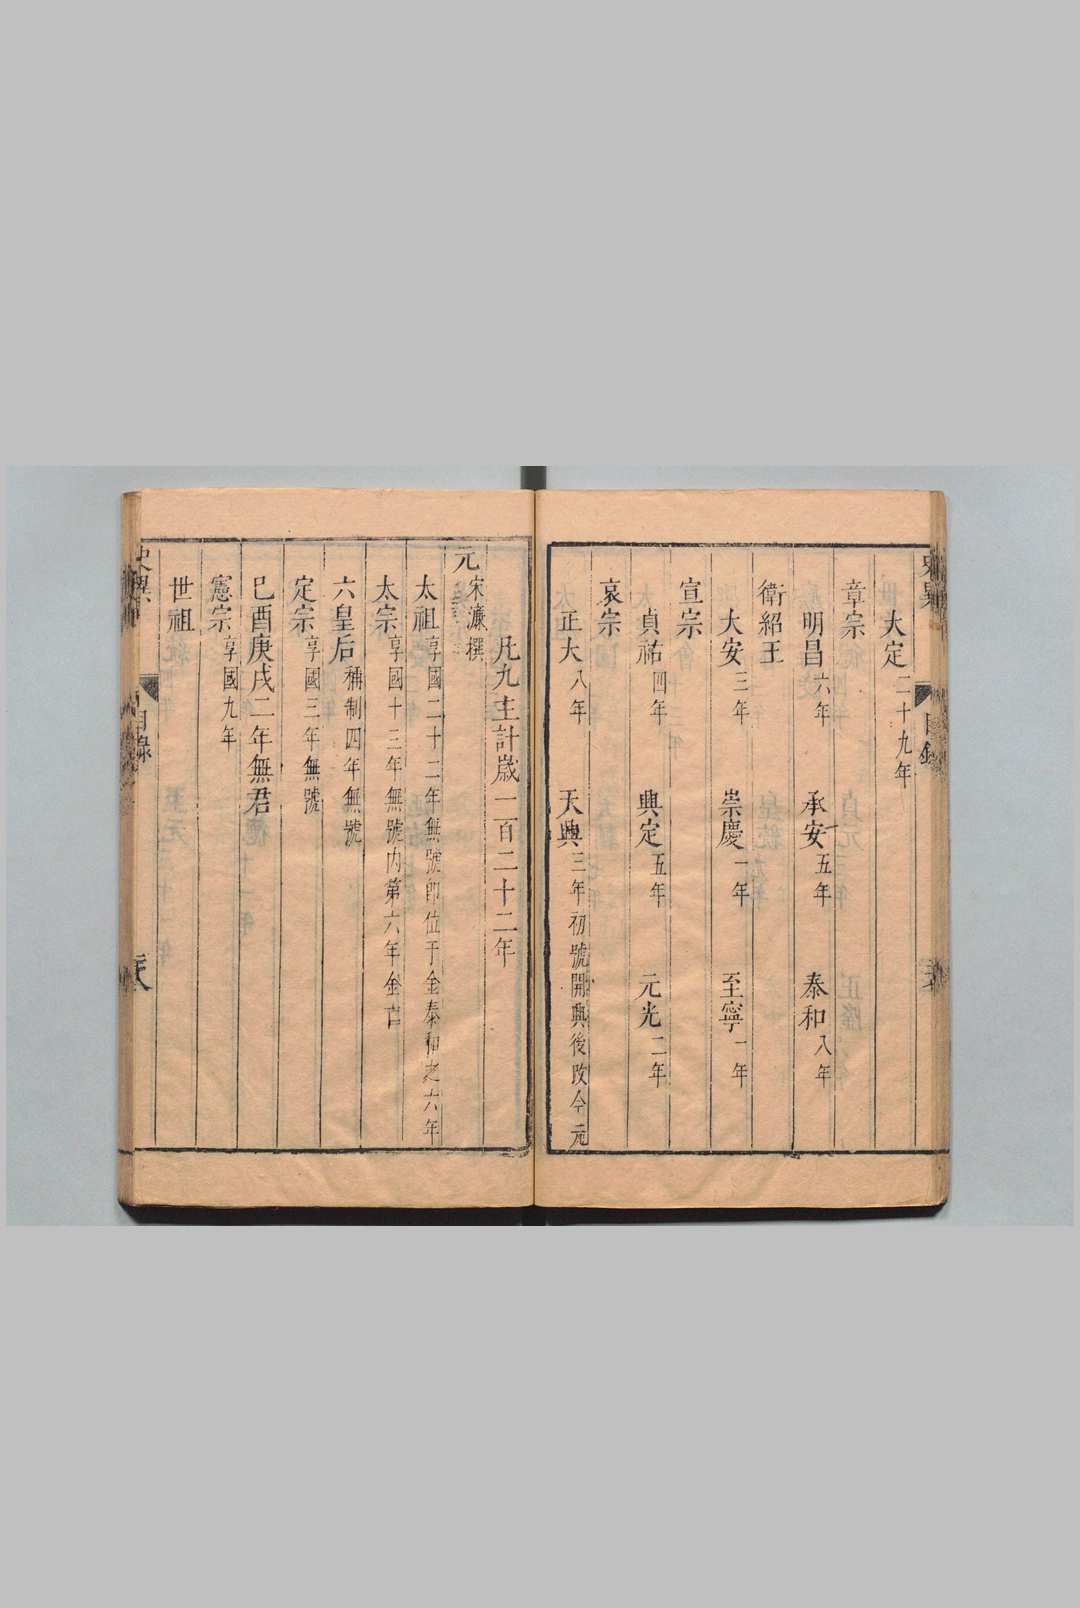 大定二十九年
章宗
明昌六年　承安五年　泰和八年
衛紹王
大安三年　崇慶一年　至寧一年
宣宗
貞祐四年　興定五年　元光二年
哀宗
正大八年　天興三年初號開興後改今元
凡九主計歲一百二十二年
元宋濂撰
太祖享國二十二年無號即位于金泰和之六年
太宗享國十三年無號內第六年金亡
六皇后稱制四年無號
定宗享國三年無號
己酉庚戌二年無君
憲宗享國九年
世祖
目錄